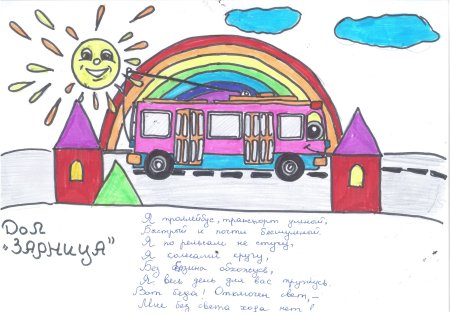 ДОЛ
"ЗАРНИЦА"
Я троллейбус, транспорт умный,
Быстрый и почти бесшумный
Я по рельсам не стучу,
Я колёсами кручу,
Без бензина обхожусь,
Я весь день для вас тружусь.
Вот беда! Отключен свет, –
Мне без света хода нет!